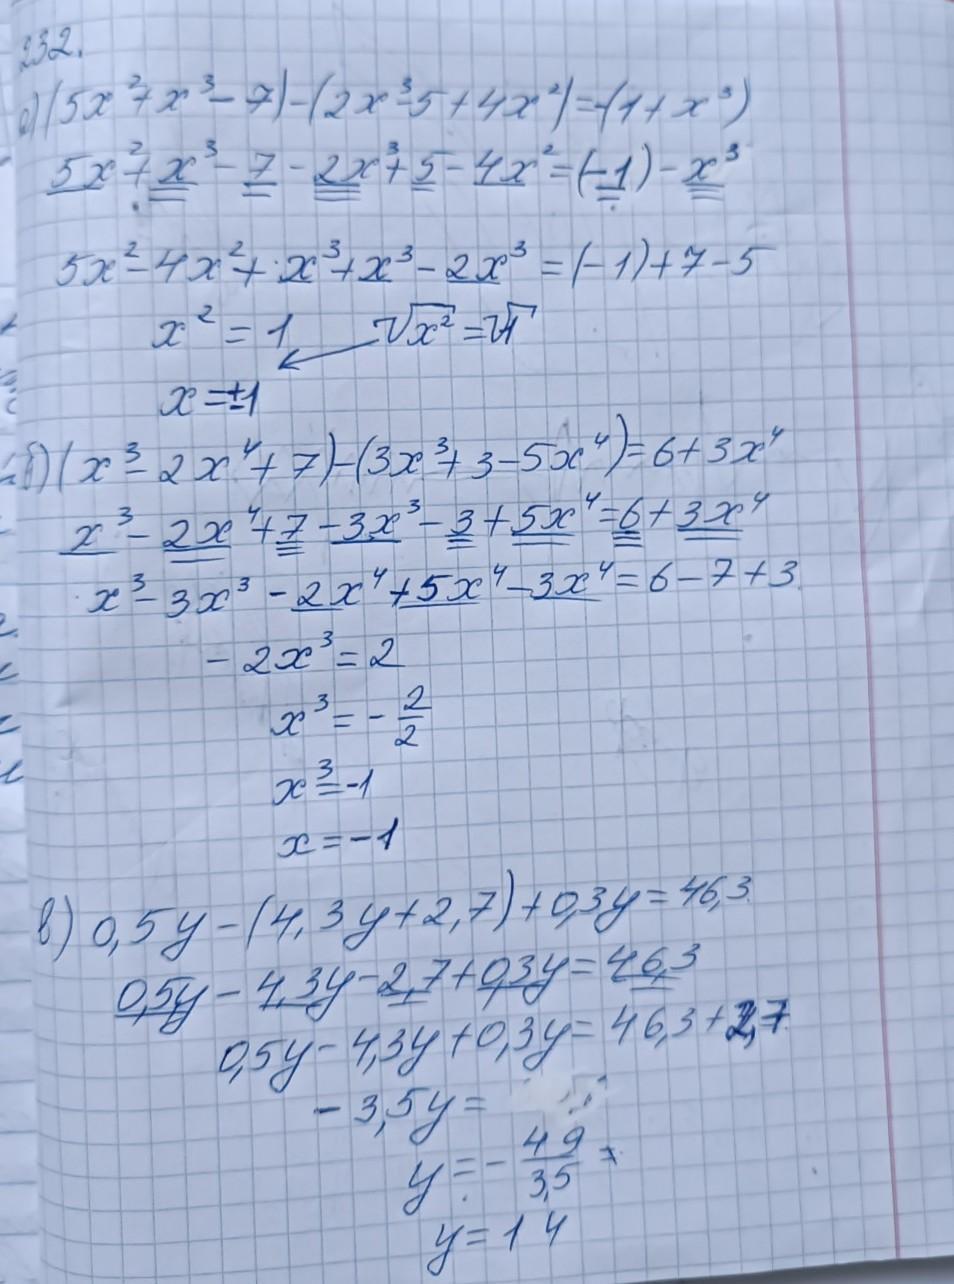 232.
а) (5x²+x³-7)-(2x³-5+4x²)=-(1+x³)
5x²+x³-7-2x³+5-4x²=(-1)-x³
5x²-4x²+x³+x³-2x³=(-1)+7-5
x²=1 √x²=√1
x=±1
б) (x³-2x⁴+7)-(3x³+3-5x⁴)=6+3x⁴
x³-2x⁴+7-3x³-3+5x⁴=6+3x⁴
x³-3x³-2x⁴+5x⁴-3x⁴=6-7+3
-2x³=2
x³=-2/2
x³=-1
x=-1
в) 0,5y-(4,3y+2,7)+0,3y=46,3
0,5y-4,3y-2,7+0,3y=46,3
0,5y-4,3y+0,3y=46,3+2,7
-3,5y=
y=-49/3,5=
y=14